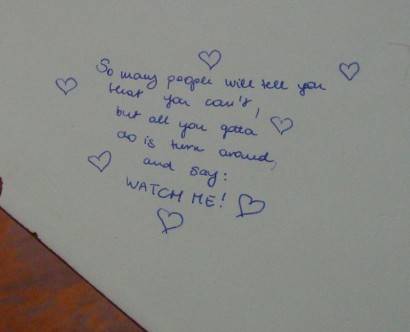 So many people will tell you
that you can't,
but all you gotta
do is turn around,
and say:
WATCH ME!